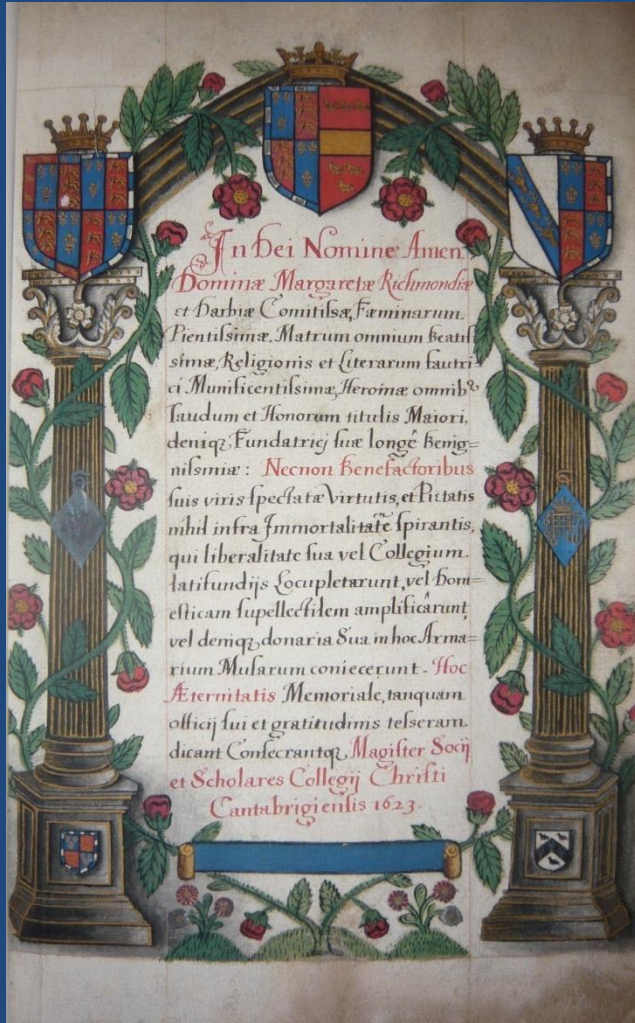 In Dei Nomine Amen
Dominæ Margaretæ Richmondiæ
et Darbiæ Comitiſsæ, Fæminarum
Pientiſsimæ, Matrum omnium beatiſ
simæ, Religionis et Literarum fautri
ci Munificentiſsimæ, Heroinæ omnibꝫ
laudum et Honorum titulis Maiori,
deniqꝫ Fundatricj ſuæ longè Benig=
niſsmiæ : Necnon Benefactoribus
ſuis viris ſpectatæ Virtutis, et Pietatis
nihil infra Immortalitatẽ ſpirantis,
qui liberalitate ſua vel Collegium
latifundijs Locupletarunt, vel Dom=
eſticam ſupellectilem amplificârunt,
vel deniqꝫ donaria Sua in hoc Arma=
rium Muſarum coniecerunt. Hoc
Æternitatis Memoriale, tanquam
officij ſui et gratitudinis teſseram
dicant Conſecrantqꝫ Magiſter Socij
et Scholares Collegij Chriſti
Cantabrigienſis 1623.